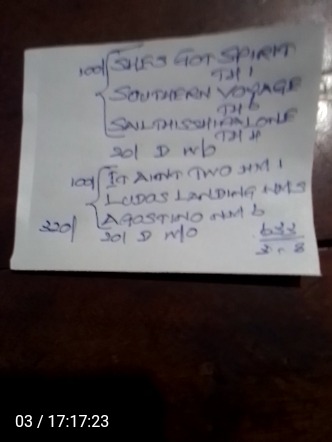 100/ SHES GOT SPIRIT
TM 1
SOUTHERN VOYAGE
TM 6
SAILTHISSHIPALONE
TM 4
20/ D W/O
100/ IT AINT TWO NM 1
LUDOS LANDING NM5
AGOSTINO NM 6
320/ 20/ D W/O
633
03 / 17:17:23